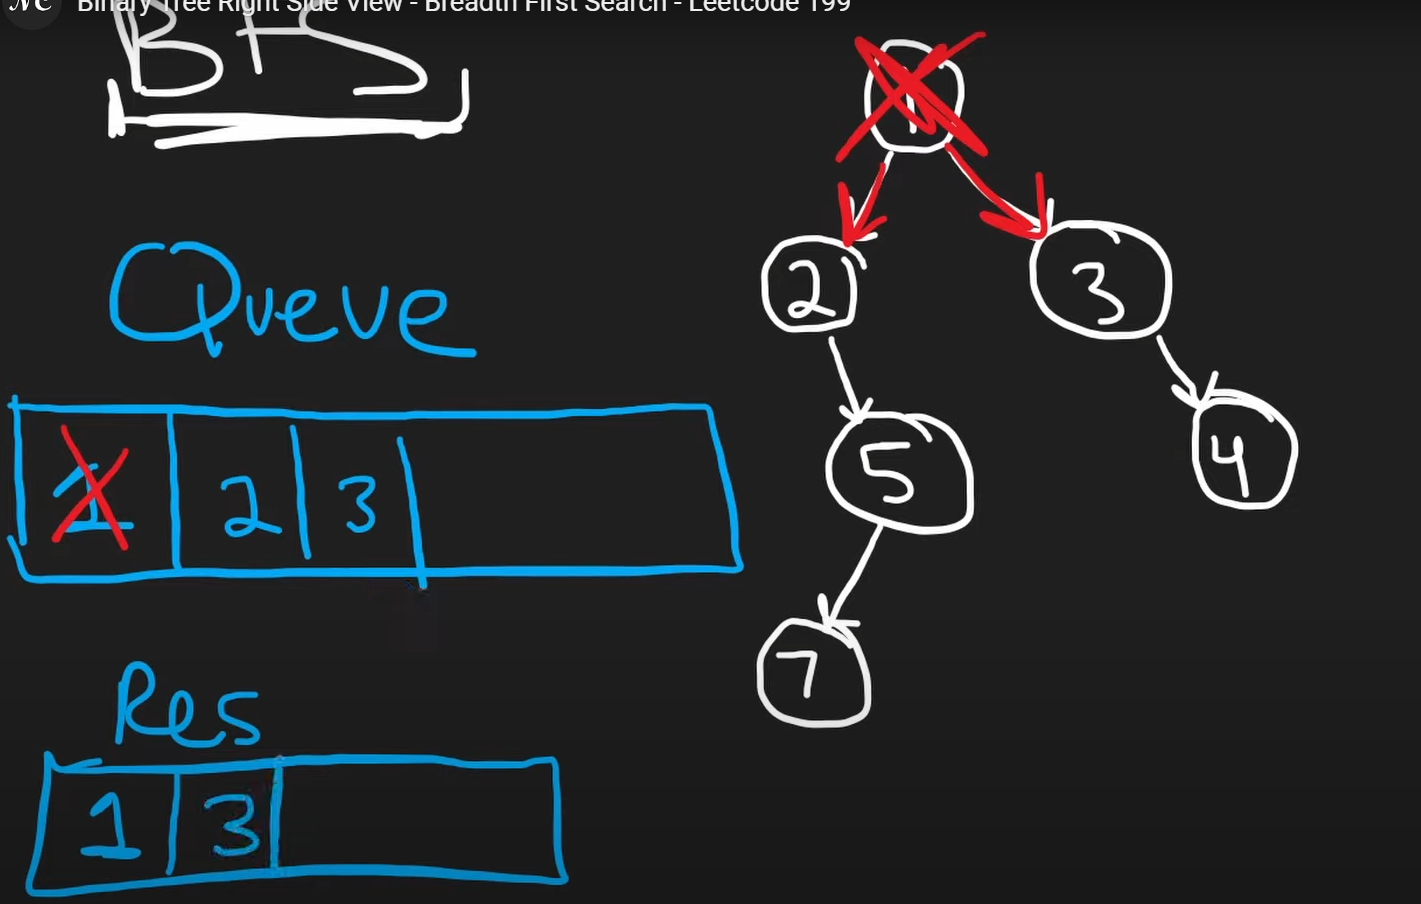 NC Binary Tree Right Side View - Breadth First Search - Leetcode 199
BFS
1
2 3
Queue
5 4
1 2 3
7
Res
1 3